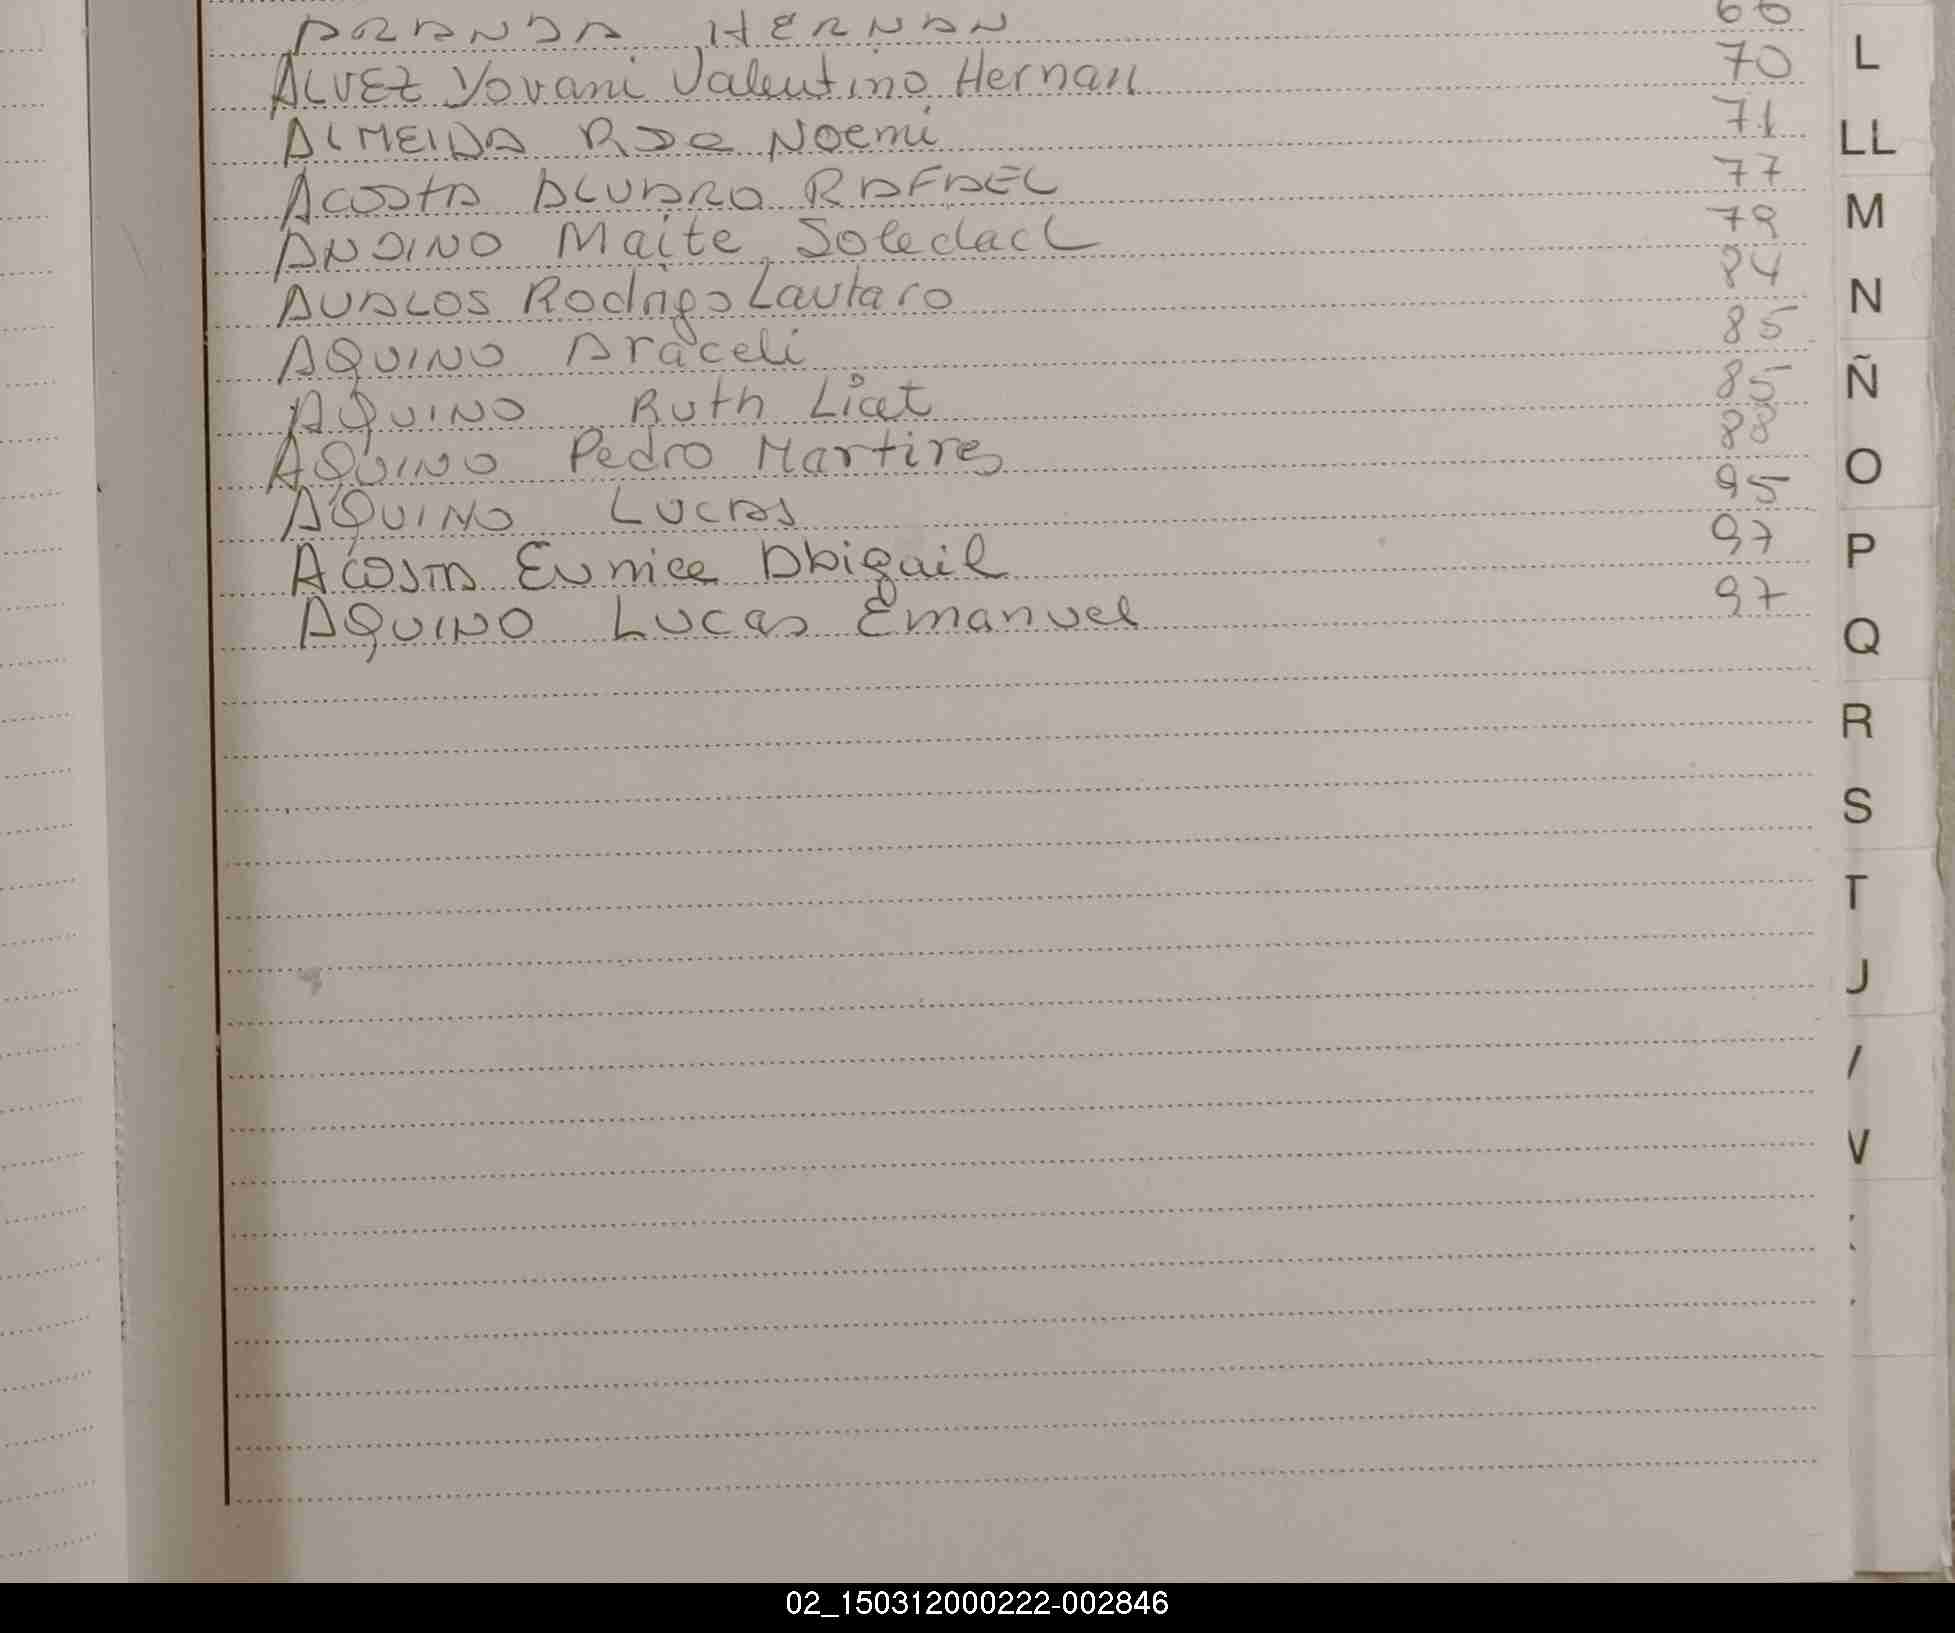 ARANDA HERNAN 66
ALVEZ Yovani Valentino Hernan 70
ALMEIDA Noemi 71
ACOSTA ALVARO RAFAEL 77
ANDINO Maite Soledad 79
AVALOS Rodrigo Lautaro 84
AQUINO Araceli 85
AQUINO Ruth Liat 85
AQUINO Pedro Martires 88
AQUINO LUCAS 95
ACOSTA Eunice Abigail 97
AQUINO Lucas Emanuel 97
L
LL
M
N
Ñ
O
P
Q
R
S
T
02_150312000222-002846